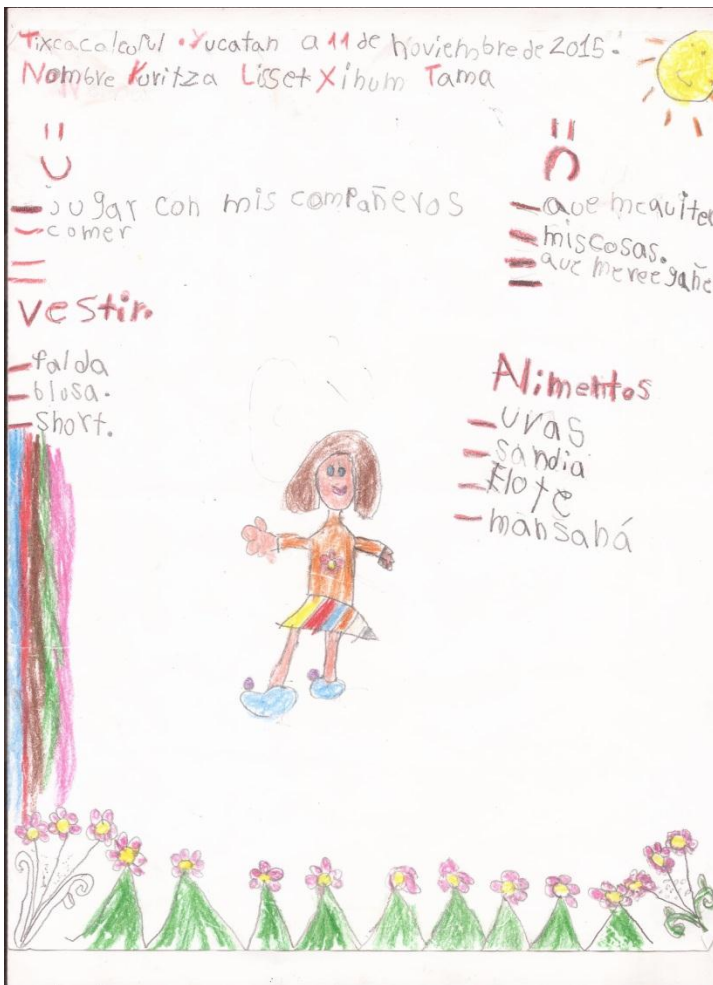 Tixcacalcupul • Yucatan a 11 de noviembre de 2015.
Nombre Yuritza Lisset Xihum Tama
jugar con mis compañeros
comer
que me quiten
mis cosas.
que me reegañe
vestir.
falda
blusa.
short.
Alimentos
uvas
sandia
Elote
mansaná